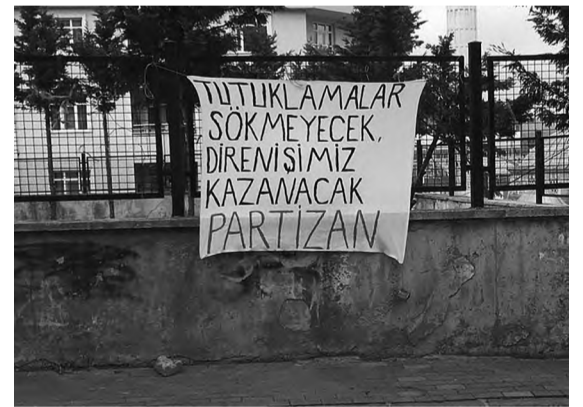 TUTUKLAMALAR
SÖKMEYECEK,
DİRENİŞİMİZ
KAZANACAK
PARTİZAN